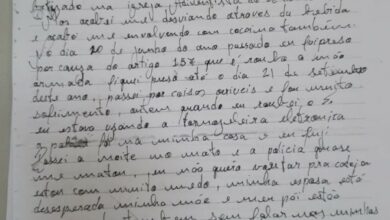 batizado na igreja Adventista do
Por acabei me desviando através da bebida
e acabei me envolvendo com cocaína também.
No dia 20 de junho do ano passado eu fui preso
por causa do artigo 157 que é roubo a mão
armada, fiquei preso até o dia 21 de setembro
deste ano, passei por coisas horríveis e foi muito
sofrimento, ontem quando eu roubei o
eu estava usando a tornozeleira eletronica
a foi na minha casa e eu fuji
Passei a noite no mato e a policia quase
me matou, eu não quero voltar pra cadeia
estou com muito medo, minha esposa está
desesperada minha mãe e meu pai estão
sem falar meus